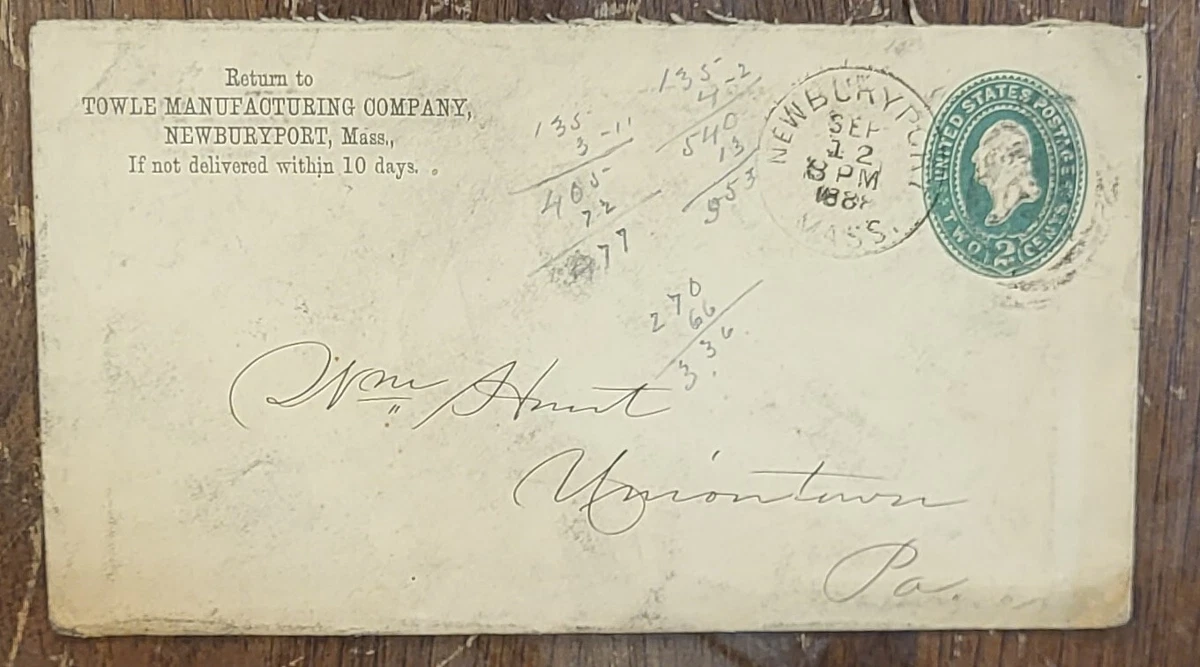 Return to
TOWLE MANUFACTURING COMPANY,
NEWBURYPORT, Mass.,
If not delivered within 10 days.
135
3-11
405
72
77
135-2
4
540
13
553
270
66
3.36
NEWBURYPORT
SEP
12
8 PM
1888
MASS.
UNITED STATES POSTAGE
TWO 2 CENTS
Wm Hunt
Uniontown
Pa